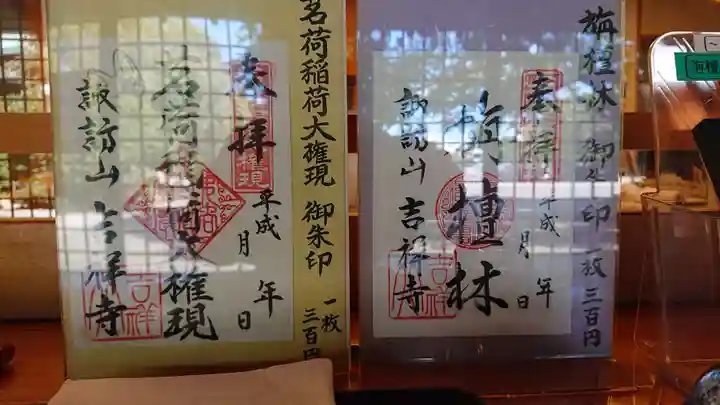 茗荷稲荷大権現 御朱印 一枚 三百円
奉拝
平成 年 月 日
茗荷稲荷大権現
諏訪山 吉祥寺
吉祥
栴檀林 御朱印 一枚 三百円
奉拝
平成 年 月 日
栴檀林
諏訪山 吉祥寺
吉祥